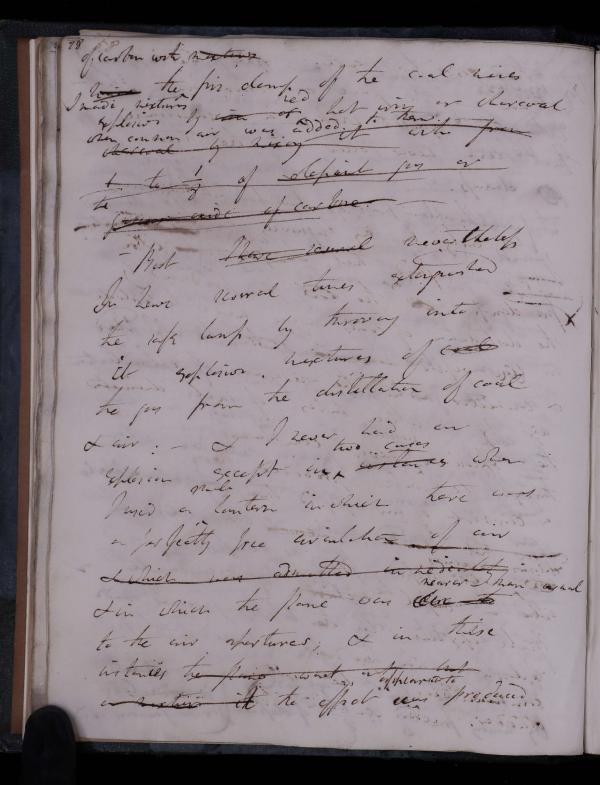 78
of carbon with mixtures
the fire damp of the coal mines
I made mixtures
red hot iron or charcoal
explosive by
when common air was added to them
charcoal by it with from
1/ to 1/ of olefiant gas or
the
gaseous oxide of carbone.
– But I have several nevertheless
I have several times extinguished
the safe lamp by throwing into
it explosive mixtures of coal
the gas from the distillation of coal
& air: – & I never had an
two cases
explosion except in instances when
I used a lantern in which there was
a perfectly free circulation of air
& which was admitted in
nearer than usual
& in which the flame was close to
to the air apertures; & in these
instances the went
a mixture the effect was produced